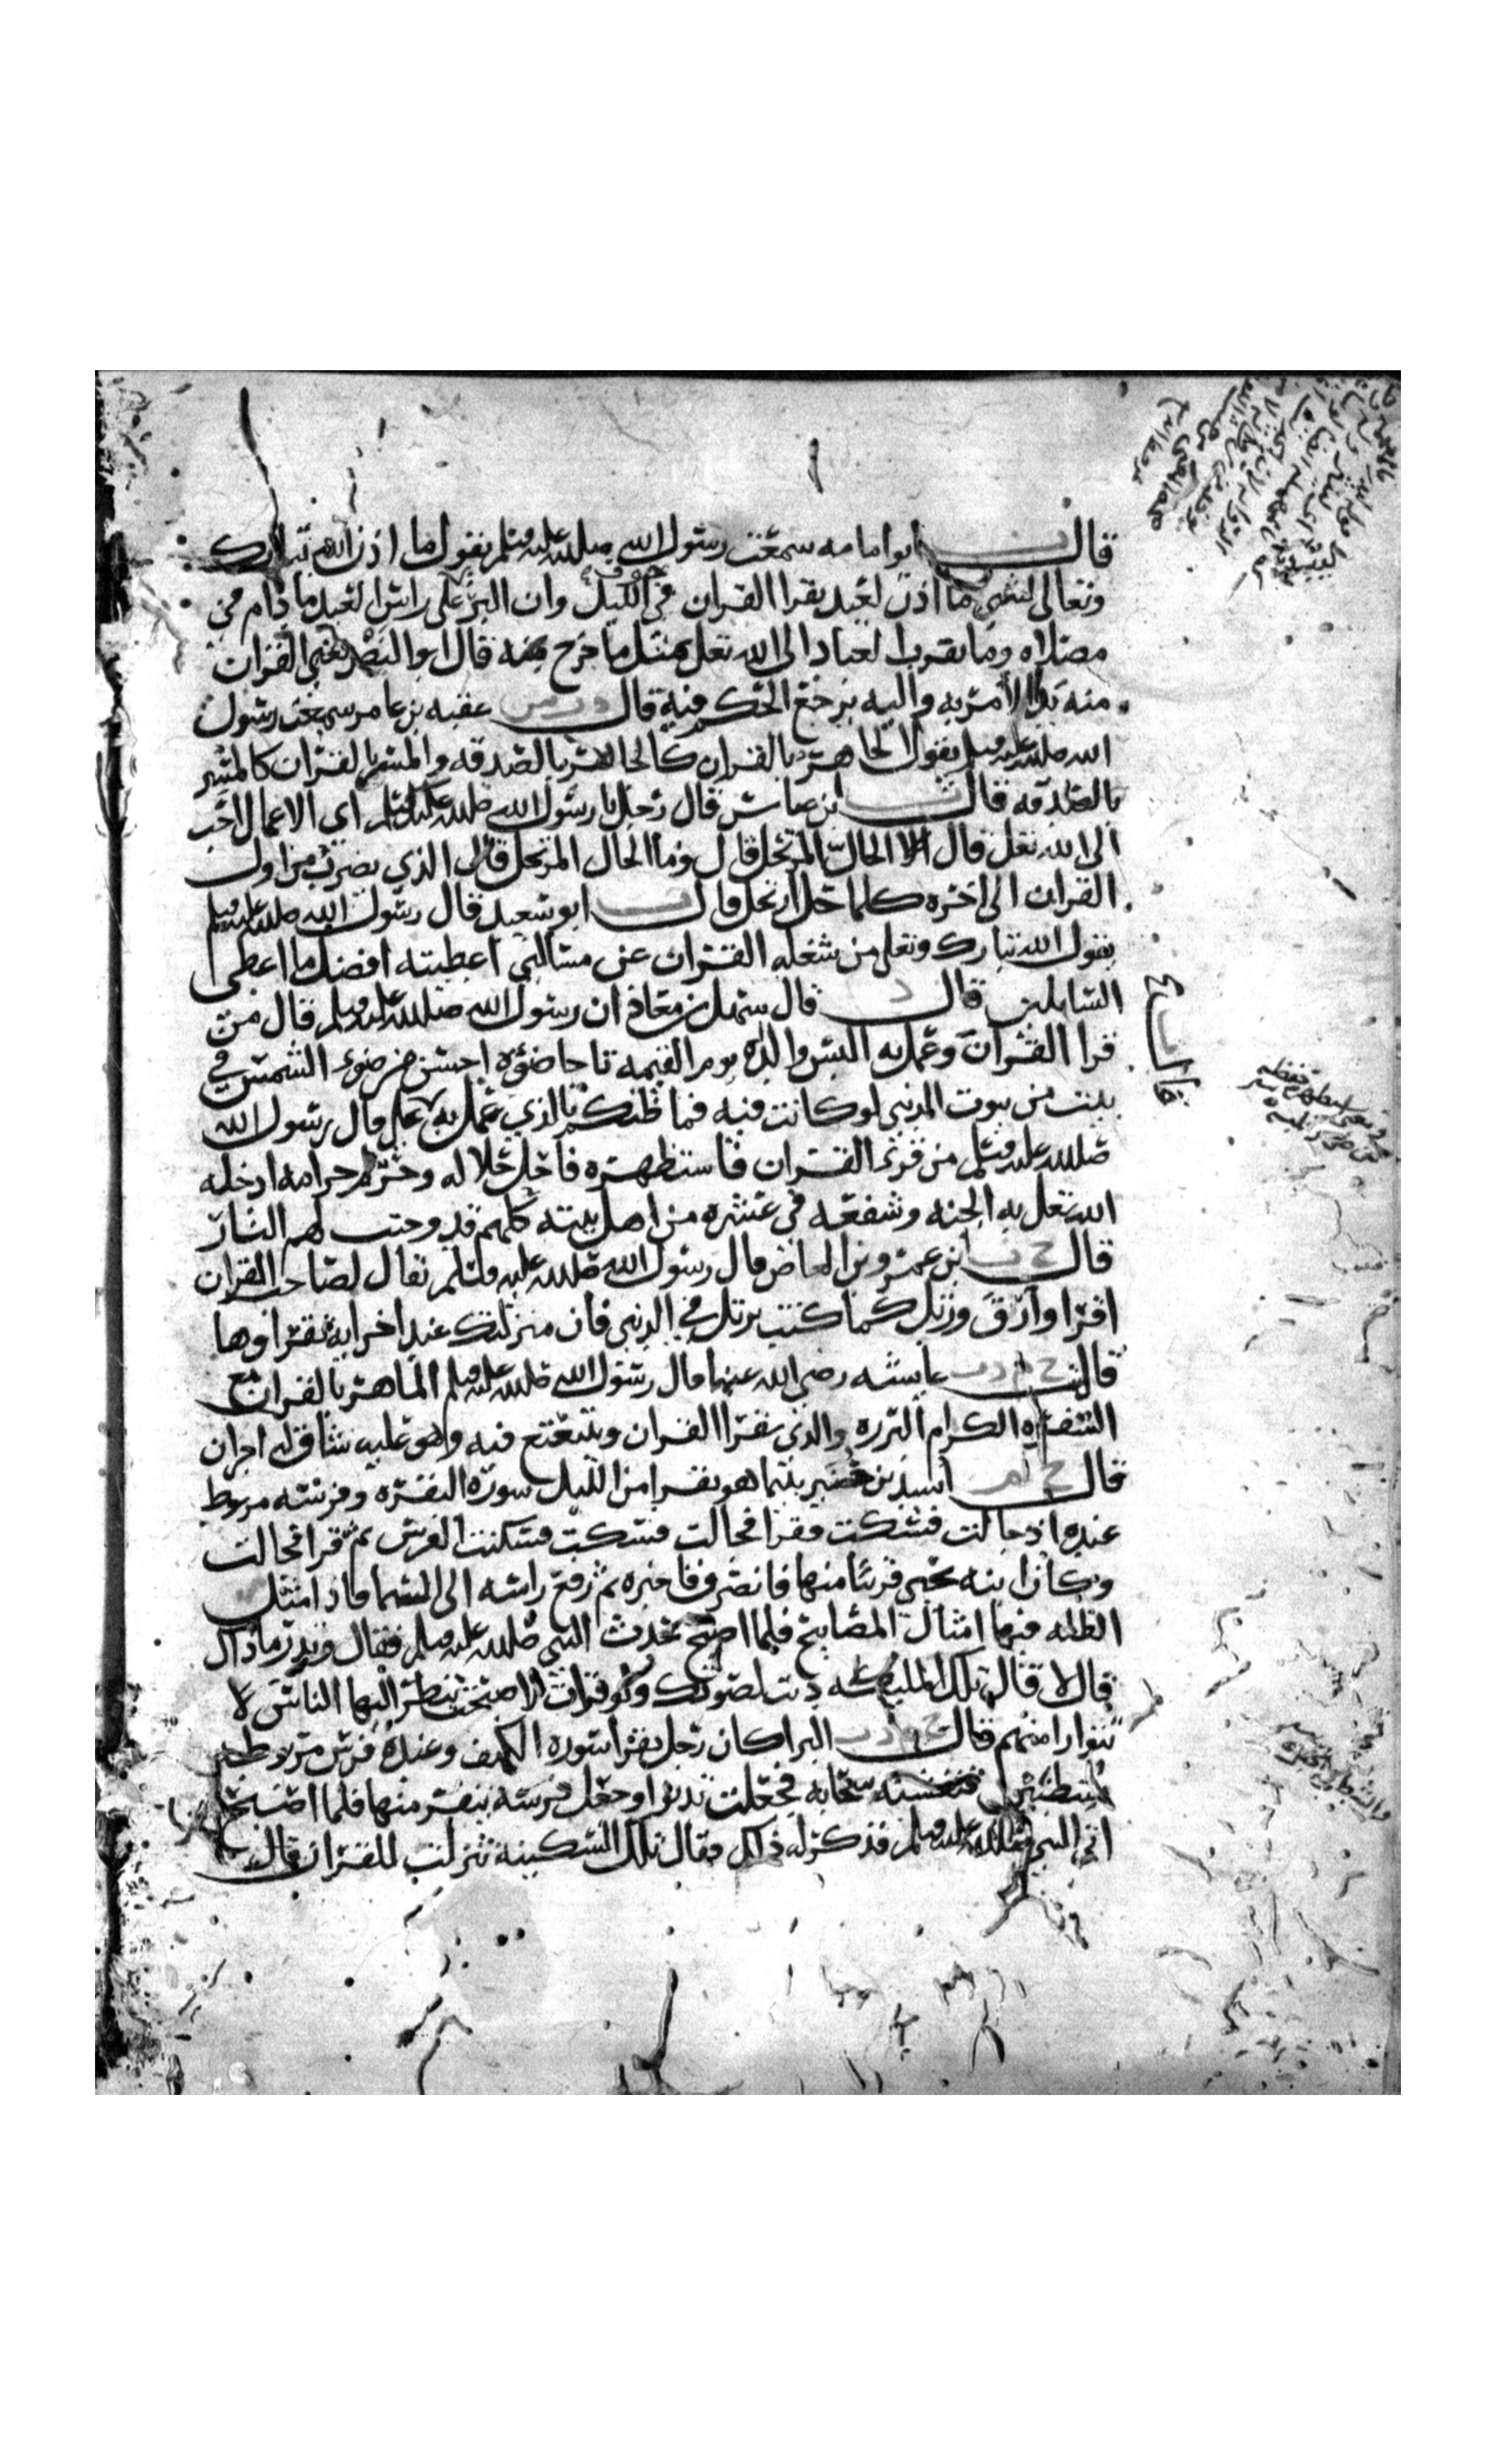 قال ت ابو امامه سمعت رسول الله صلى الله عليه وسلم يقول ما اذن الله تبارك
وتعالى لشي ما اذن لعبد يقرا القران في جوف الليل وان البر على راس العبد ما دام في
مصلاه وما يقرب العباد الى الله تعلى بمثل ما خرج منه قال ابو النضر يعني القران
منه بدا الامر به واليه يرجع الحكم فيه قال د ت س عقبه بن عامر سمعت رسول
الله صلى الله عليه وسلم يقول الجاهر بالقران كالجاهر بالصدقه والمسر بالقران كالمسر
بالصدقه قال ت ابن عباس قال رجل يا رسول الله صلى الله عليك وسلم اي الاعمال احب
الى الله تعلى قال الحال المرتحل قال وما الحال المرتحل قال الذي يضرب من اول
القران الى اخره كلما حل ارتحل قال ت ابو سعيد قال رسول الله صلى الله عليه وسلم
يقول الله تبارك وتعلى من شغله القران عن مسالتي اعطيته افضل ما اعطي
السايلين قال د قال سهل بن معاذ ان رسول الله صلى الله عليه وسلم قال من
قرا القران وعمل به البس والداه يوم القيمه تاجا ضوه احسن من ضوء الشمس في
بيت من بيوت الدنيى لو كانت فيه فما ظنكم بالذي عمل به علي قال رسول الله
صلى الله عليه وسلم من قرئ القران فاستظهره فاحل حلاله وحرم حرامه ادخله
الله تعلى به الجنه وشفعه في عشره من اهل بيته كلهم قد وجبت لهم النار
قال د ت ابن عمرو بن العاص قال رسول الله صلى الله عليه وسلم يقال لصاحب القران
اقرا وارق ورتل كما كنت ترتل في الدنيى فان منزلتك عند اخر ايه تقراوها
قال خ م د ت عايشه رضي الله عنها قال رسول الله صلى الله عليه وسلم الماهر بالقران مع
السفره الكرام البرره والذي يقرا القران ويتتعتع فيه وهو عليه شاق له اجران
قال خ م اسيد بن حضير بينما هو يقرا من الليل سورة البقره وفرسه مربوط
عنده اذ جالت فسكت فسكنت فقرا فجالت فسكت فسكنت الفرس ثم قرا فجالت
وكان ابنه يحيى قريبا منها فانصرف فاخبره ثم رفع راسه الى السما فاذا مثل
الظله فيها امثال المصابيح فلما اصبح حدث النبي صلى الله عليه وسلم فقال وتدر ما ذاك
قال لا قال تلك الملائكه دنت لصوتك ولو قرات لاصبحت ينظر اليها الناس لا
تتوارا منهم قال خ م ت البرا كان رجل يقرا سورة الكهف وعنده فرس مربوط
بشطنين فتغشته سحابه فجعلت تدنوا وجعل فرسه ينفر منها فلما اصبح
اتى النبي صلى الله عليه وسلم فذكر له ذلك فقال تلك السكينة تنزلت للقران قال